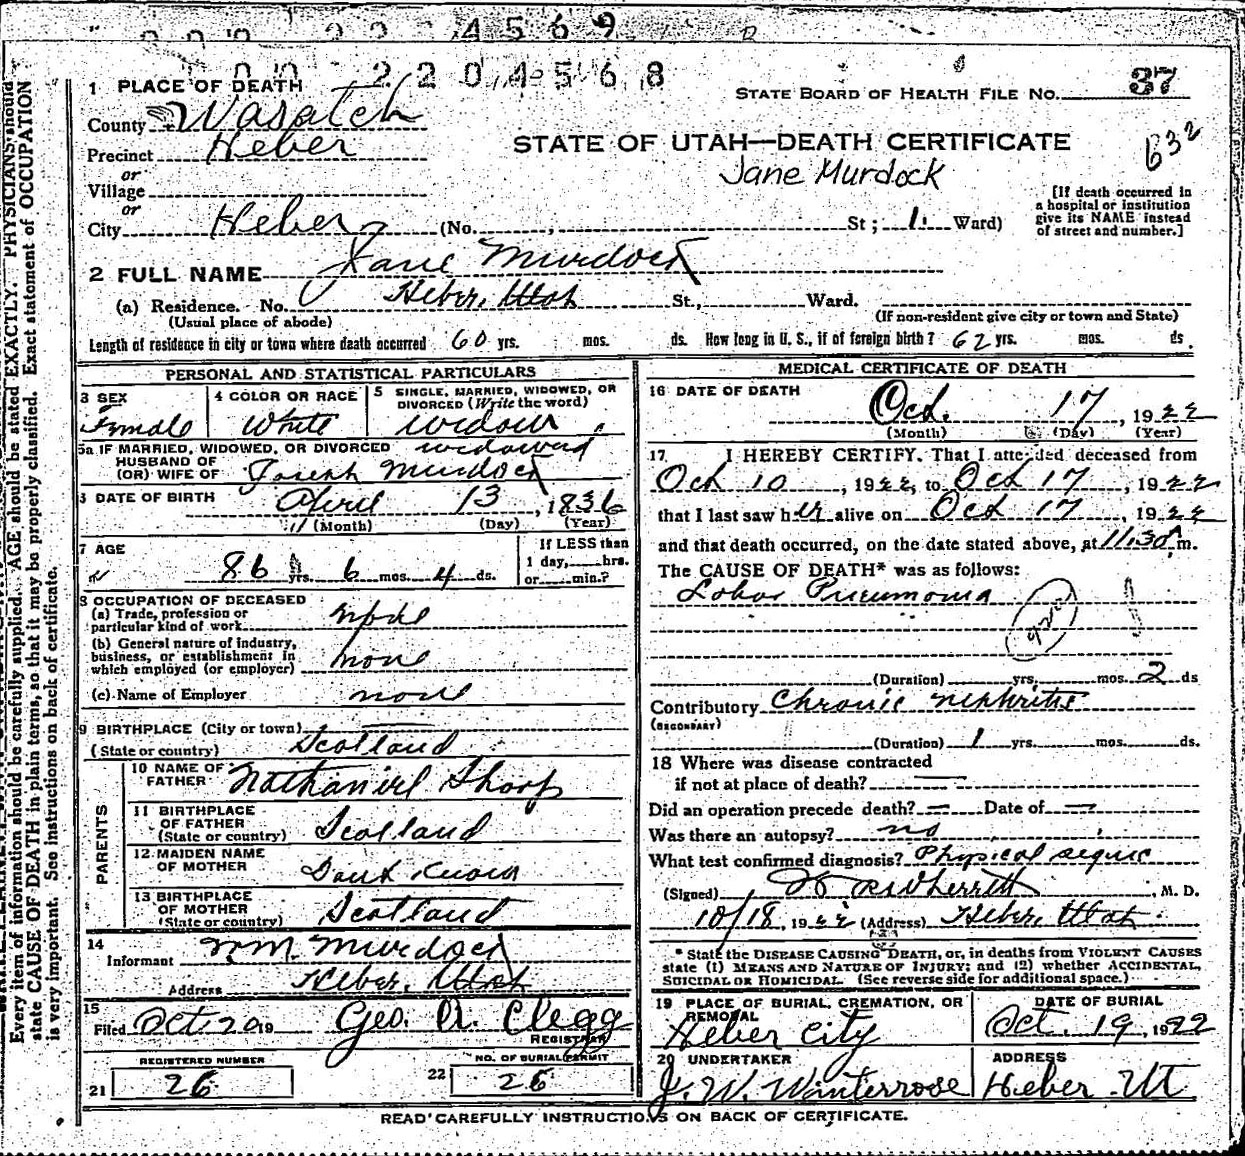 4569
2204568
1 PLACE OF DEATH
STATE BOARD OF HEALTH FILE No. 37
County Wasatch
Precinct Heber
STATE OF UTAH—DEATH CERTIFICATE
632
Jane Murdock
or
Village
or
City Heber (No. , St ; 1. Ward)
[If death occurred in
a hospital or institution
give its NAME instead
of street and number.]
2 FULL NAME Jane Murdock
(a) Residence. No. Heber, Utah St., Ward.
(Usual place of abode) (If non-resident give city or town and State)
Length of residence in city or town where death occurred 60 yrs. mos. ds. How long in U. S., if of foreign birth? 62 yrs. mos. ds.
PERSONAL AND STATISTICAL PARTICULARS
3 SEX
Female
4 COLOR OR RACE
White
5 SINGLE, MARRIED, WIDOWED, OR
DIVORCED (Write the word)
widow
5a IF MARRIED, WIDOWED, OR DIVORCED widowed
HUSBAND OF
(OR) WIFE OF Joseph Murdock
6 DATE OF BIRTH April 13, 1836
(Month) (Day) (Year)
7 AGE
86 yrs. 6 mos. 4 ds.
If LESS than
1 day, hrs.
or min.?
8 OCCUPATION OF DECEASED
(a) Trade, profession or
particular kind of work none
(b) General nature of industry,
business, or establishment in
which employed (or employer) none
(c) Name of Employer none
9 BIRTHPLACE (City or town)
(State or country) Scotland
PARENTS
10 NAME OF
FATHER Nathaniel Sharp
11 BIRTHPLACE
OF FATHER
(State or country) Scotland
12 MAIDEN NAME
OF MOTHER Dont Know
13 BIRTHPLACE
OF MOTHER
(State or country) Scotland
14
Informant Wm. Murdock
Address Heber, Utah
15
Filed Oct 20 19 Geo. A. Clegg
REGISTRAR
REGISTERED NUMBER
21 26
NO. OF BURIAL PERMIT
22 26
MEDICAL CERTIFICATE OF DEATH
16 DATE OF DEATH
Oct. 17, 1922
(Month) (Day) (Year)
17 I HEREBY CERTIFY, That I attended deceased from
Oct 10, 1922, to Oct 17, 1922
that I last saw her alive on Oct 17, 1922
and that death occurred, on the date stated above, at 11:30 m.
The CAUSE OF DEATH* was as follows:
Lobar Pneumonia
(Duration) yrs. mos. 2 ds
Contributory Chronic nephritis
(SECONDARY)
(Duration) 1 yrs. mos. ds.
18 Where was disease contracted
if not at place of death?
Did an operation precede death? Date of
Was there an autopsy? no
What test confirmed diagnosis? Physical signs
(Signed) M. D.
10/18, 1922 (Address) Heber, Utah
* State the DISEASE CAUSING DEATH, or, in deaths from VIOLENT CAUSES
state (1) MEANS AND NATURE OF INJURY; and (2) whether ACCIDENTAL,
SUICIDAL OR HOMICIDAL. (See reverse side for additional space.)
19 PLACE OF BURIAL, CREMATION, OR
REMOVAL
Heber City
DATE OF BURIAL
Oct. 19, 1922
20 UNDERTAKER
J. W. Winterrose
ADDRESS
Heber Ut
READ CAREFULLY INSTRUCTIONS ON BACK OF CERTIFICATE.
Every item of information should be carefully supplied. AGE should be stated EXACTLY. PHYSICIANS should
state CAUSE OF DEATH in plain terms, so that it may be properly classified. Exact statement of OCCUPATION
is very important. See instructions on back of certificate.